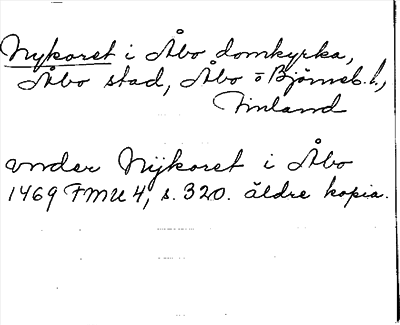 Nykoret i Åbo domkyrka,
Åbo stad, Åbo o Björneb. l.,
Finland
vnder Nijkoret i Åbo
1469 FMU 4, s. 320. äldre kopia.